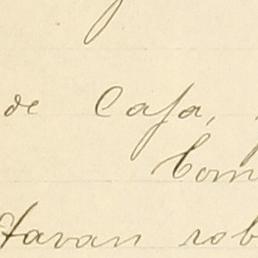 de Casa,
Com
stavan rob